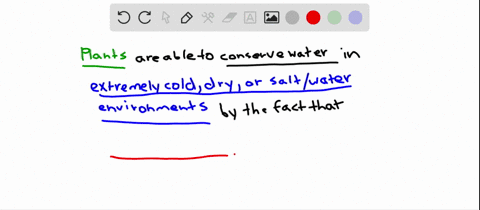 Plants are able to conserve water in
extremely cold, dry, or salt/water
environments by the fact that